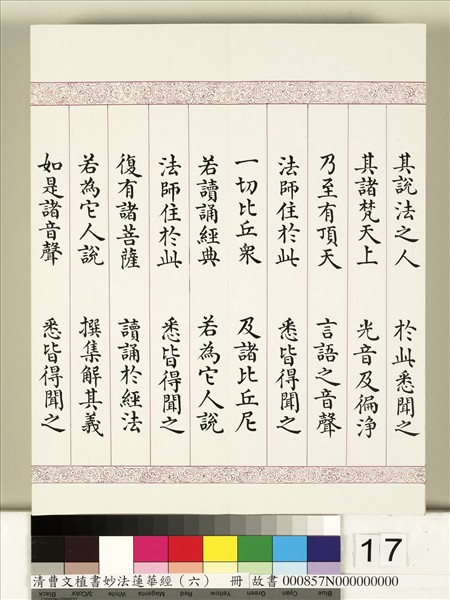 其說法之人　於此悉聞之
其諸梵天上　光音及徧淨
乃至有頂天　言語之音聲
法師住於此　悉皆得聞之
一切比丘眾　及諸比丘尼
若讀誦經典　若為它人說
法師住於此　悉皆得聞之
復有諸菩薩　讀誦於經法
若為它人說　撰集解其義
如是諸音聲　悉皆得聞之
17
Black 3/Color White Magenta Red Yellow Green Cyan Blue
清曹文植書妙法蓮華經（六）　冊　故書 000857N000000000